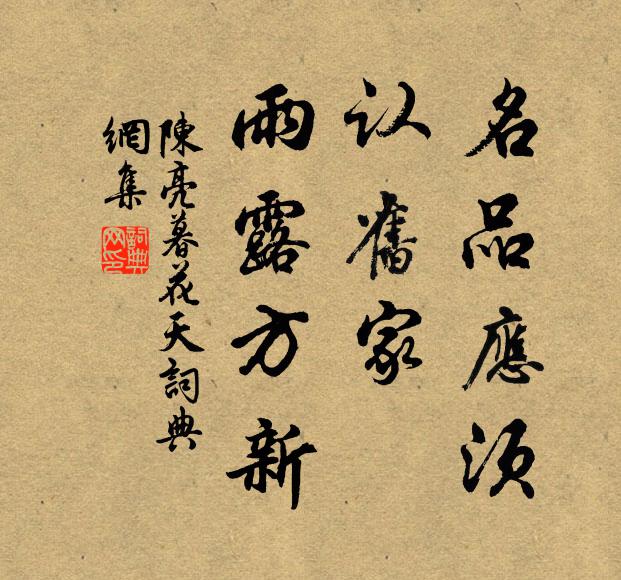 名品應須
认舊家
雨露方新
陳亮暮花天詞典
網集
詞典
网印